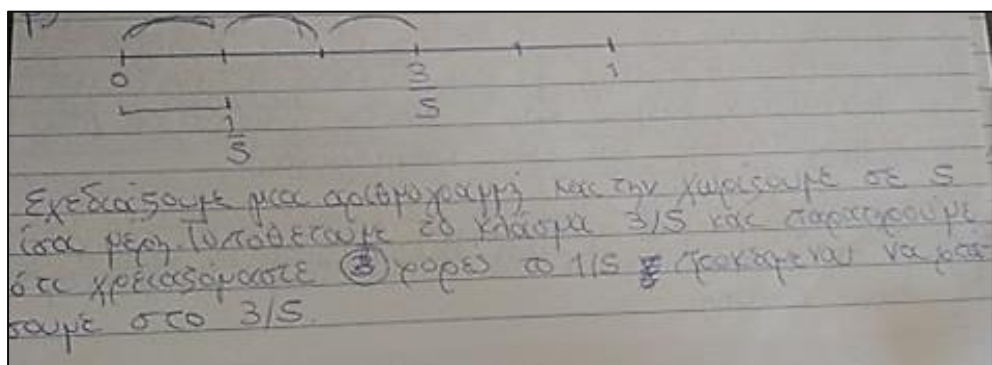 0 3/5 1
1/5
Σχεδιάζουμε μια αριθμογραμμή και την χωρίζουμε σε 5
ίσα μέρη. Τοποθετουμε το κλάσμα 3/5 και παρατηρούμε
ότι χρειαζόμαστε 3 φορες το 1/5 προκειμενου να φτά
σουμε στο 3/5.